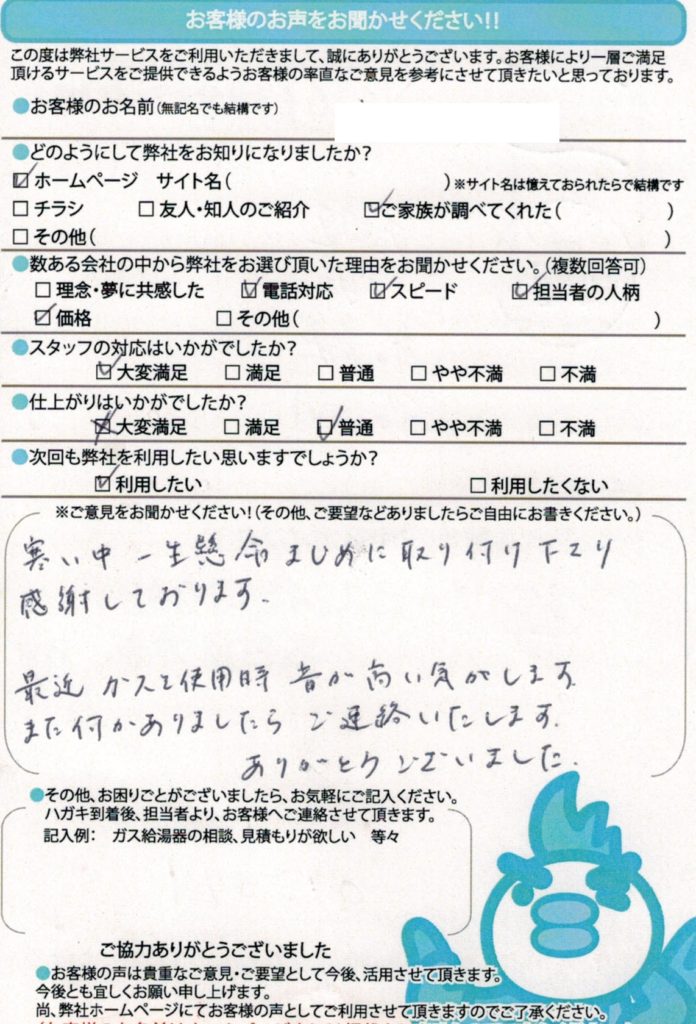 お客様のお声をお聞かせください!!
この度は弊社サービスをご利用いただきまして、誠にありがとうございます。お客様により一層ご満足
頂けるサービスをご提供できるようお客様の率直なご意見を参考にさせて頂きたいと思っております。
●お客様のお名前(無記名でも結構です)
●どのようにして弊社をお知りになりましたか?
☑ホームページ サイト名( )※サイト名は憶えておられたらで結構です
□チラシ □友人・知人のご紹介 ☑ご家族が調べてくれた( )
□その他( )
●数ある会社の中から弊社をお選び頂いた理由をお聞かせください。(複数回答可)
□理念・夢に共感した ☑電話対応 ☑スピード ☑担当者の人柄
☑価格 □その他( )
●スタッフの対応はいかがでしたか?
☑大変満足 □満足 □普通 □やや不満 □不満
●仕上がりはいかがでしたか?
☒大変満足 □満足 ☑普通 □やや不満 □不満
●次回も弊社を利用したい思いますでしょうか?
☑利用したい □利用したくない
※ご意見をお聞かせください!(その他、ご要望などありましたらご自由にお書きください。)
寒い中 一生懸命 まじめに 取り付け下さり
感謝しております。
最近 ガスを使用時 音が高い気がします
また何かありましたら ご連絡いたします。
ありがとうございました。
●その他、お困りごとがございましたら、お気軽にご記入ください。
ハガキ到着後、担当者より、お客様へご連絡させて頂きます。
記入例: ガス給湯器の相談、見積もりが欲しい 等々
ご協力ありがとうございました
●お客様の声は貴重なご意見・ご要望として今後、活用させて頂きます。
今後とも宜しくお願い申し上げます。
尚、弊社ホームページにてお客様の声としてご利用させて頂きますのでご了承ください。